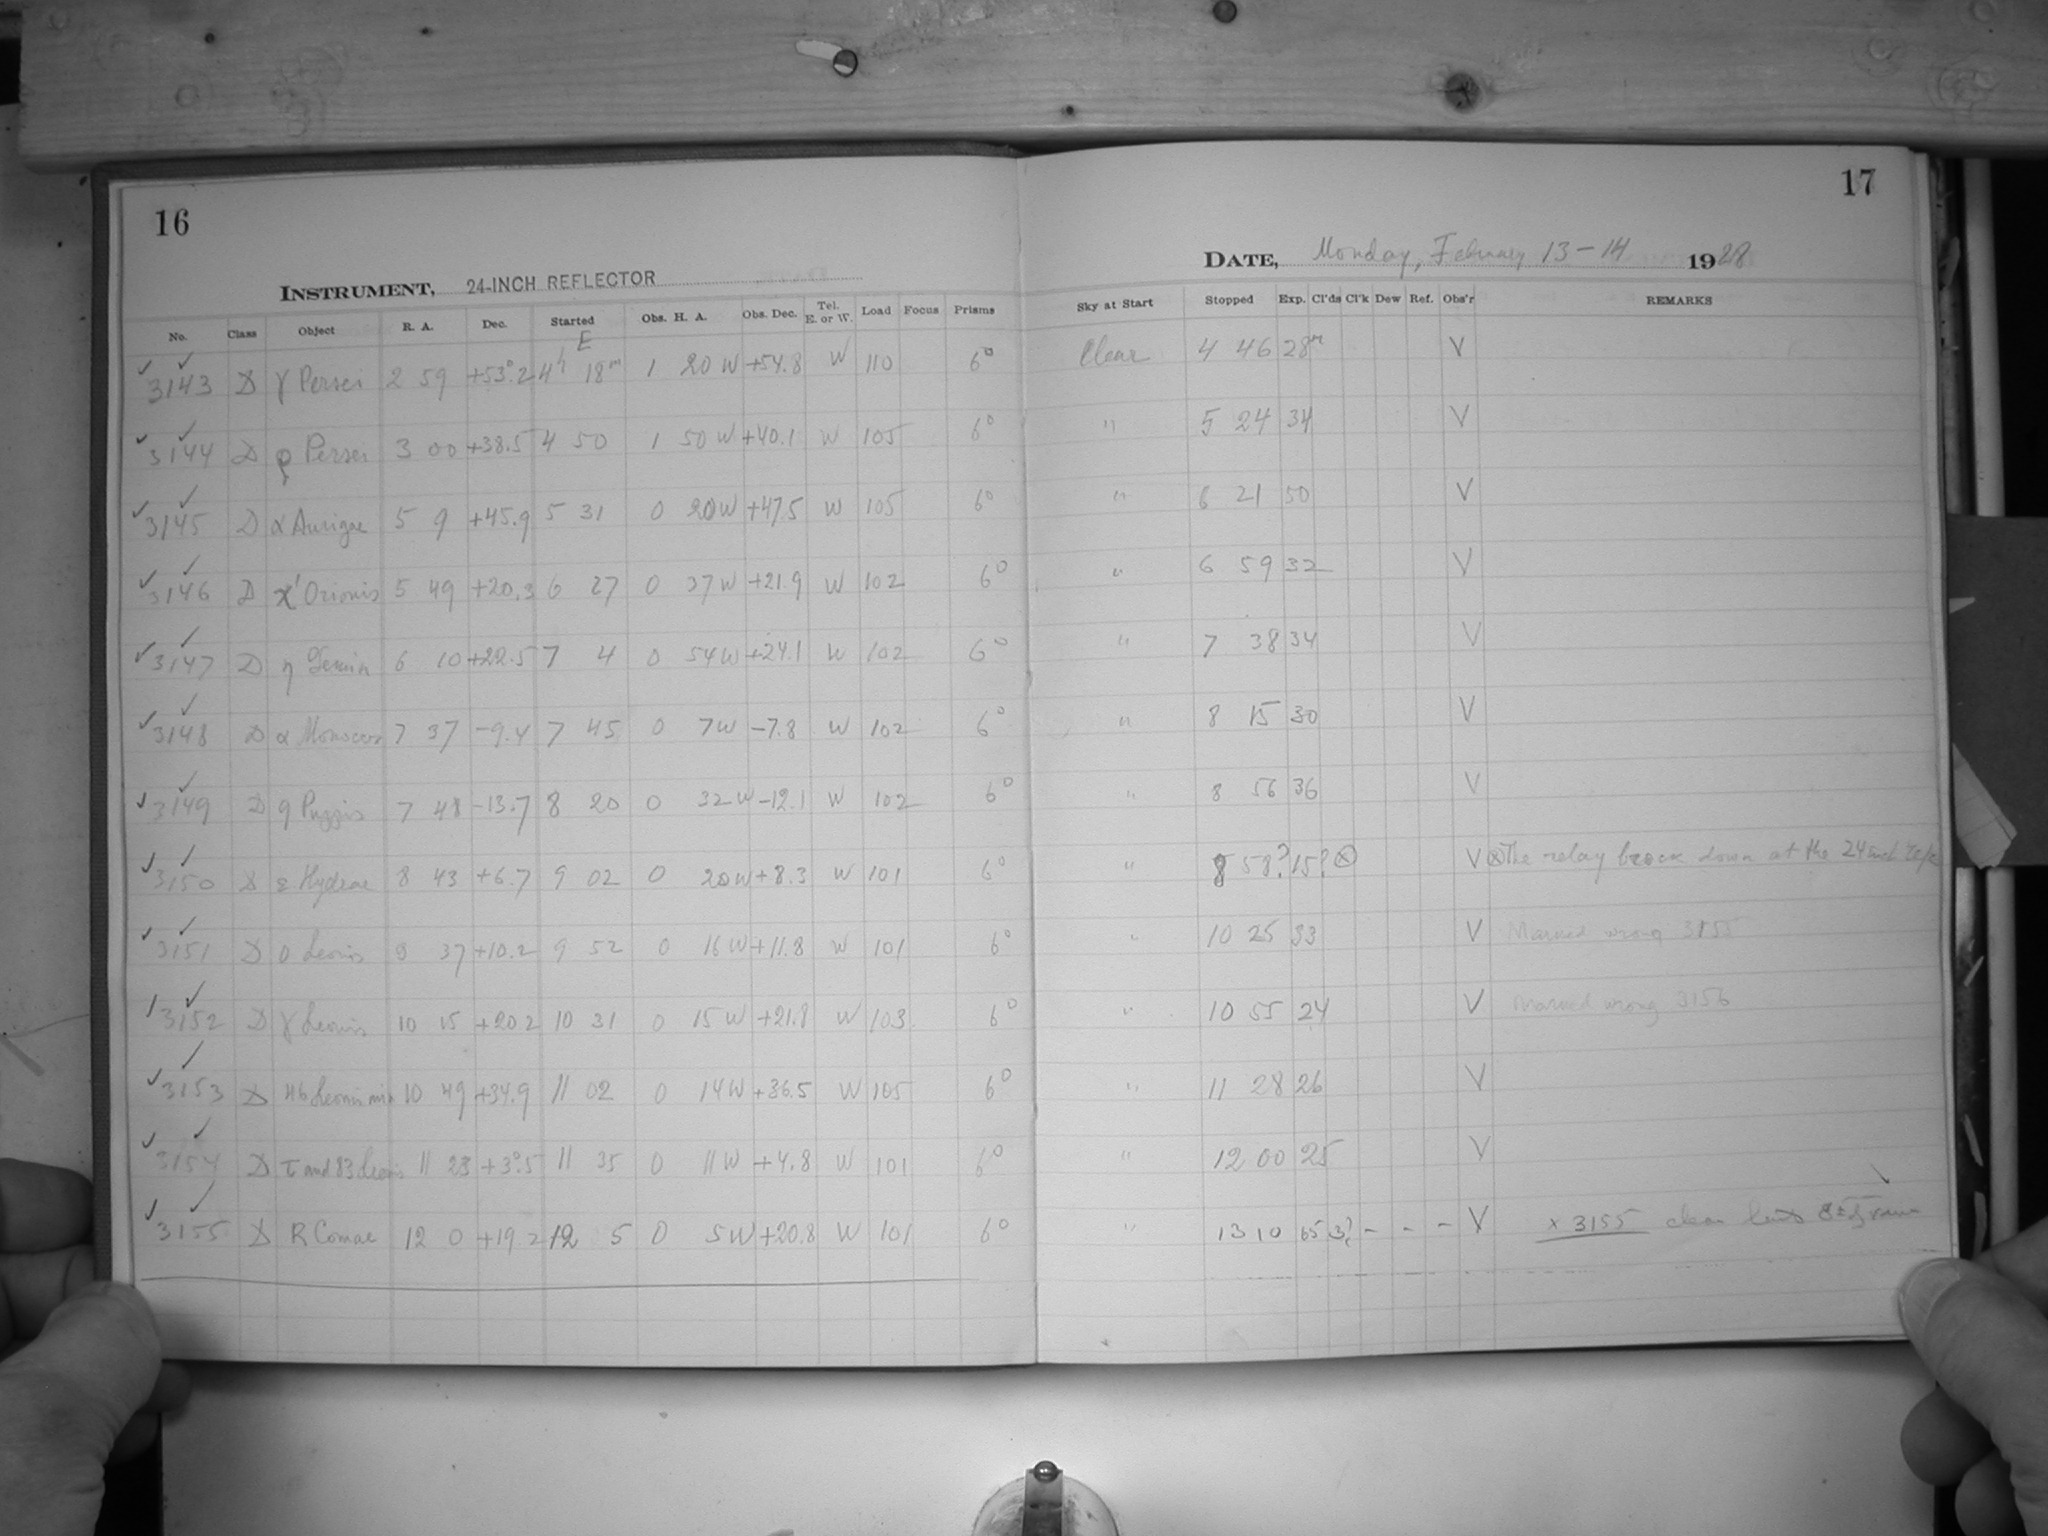 16
17
INSTRUMENT, 24-INCH REFLECTOR
DATE, Monday, February 13-14 1928
No. Class Object R. A. Dec. Started Obs. H. A. Obs. Dec. Tel. E. or W. Load Focus Prisms Sky at Start Stopped Exp. Cl'ds Cl'k Dew Ref. Obs'r REMARKS
E
3143 D γ Persei 2 59 +53°.2 4h 18m 1 20 W +54.8 W 110 6° Clear 4 46 28m V
3144 D ρ Persei 3 00 +38.5 4 50 1 50 W +40.1 W 105 6° " 5 24 34 V
3145 D α Aurigae 5 9 +45.9 5 31 0 20 W +47.5 W 105 6° " 6 21 50 V
3146 D χ' Orionis 5 49 +20.3 6 27 0 37 W +21.9 W 102 6° " 6 59 32 V
3147 D η Gemin 6 10 +22.5 7 4 0 54 W +24.1 W 102 6° " 7 38 34 V
3148 D α Monocer 7 37 -9.4 7 45 0 7 W -7.8 W 102 6° " 8 15 30 V
3149 D 9 Puppis 7 48 -13.7 8 20 0 32 W -12.1 W 102 6° " 8 56 36 V
3150 D ε Hydrae 8 43 +6.7 9 02 0 20 W +8.3 W 101 6° " 8 58? 15? ⊗ V ⊗ The relay break down at the 24 inch
3151 D ο Leonis 9 37 +10.2 9 52 0 16 W +11.8 W 101 6° " 10 25 33 V Marked wrong 3155
3152 D γ Leonis 10 15 +20.2 10 31 0 15 W +21.8 W 103 6° " 10 55 24 V Marked wrong 3156
3153 D 46 Leonis min 10 49 +34.9 11 02 0 14 W +36.5 W 105 6° " 11 28 26 V
3154 D τ and 83 Leonis 11 23 +3°.5 11 35 0 11 W +4.8 W 101 6° " 12 00 25 V
3155 D R Comae 12 0 +19.2 12 5 0 5 W +20.8 W 101 6° " 13 10 65 3? - - - V × 3155 clear